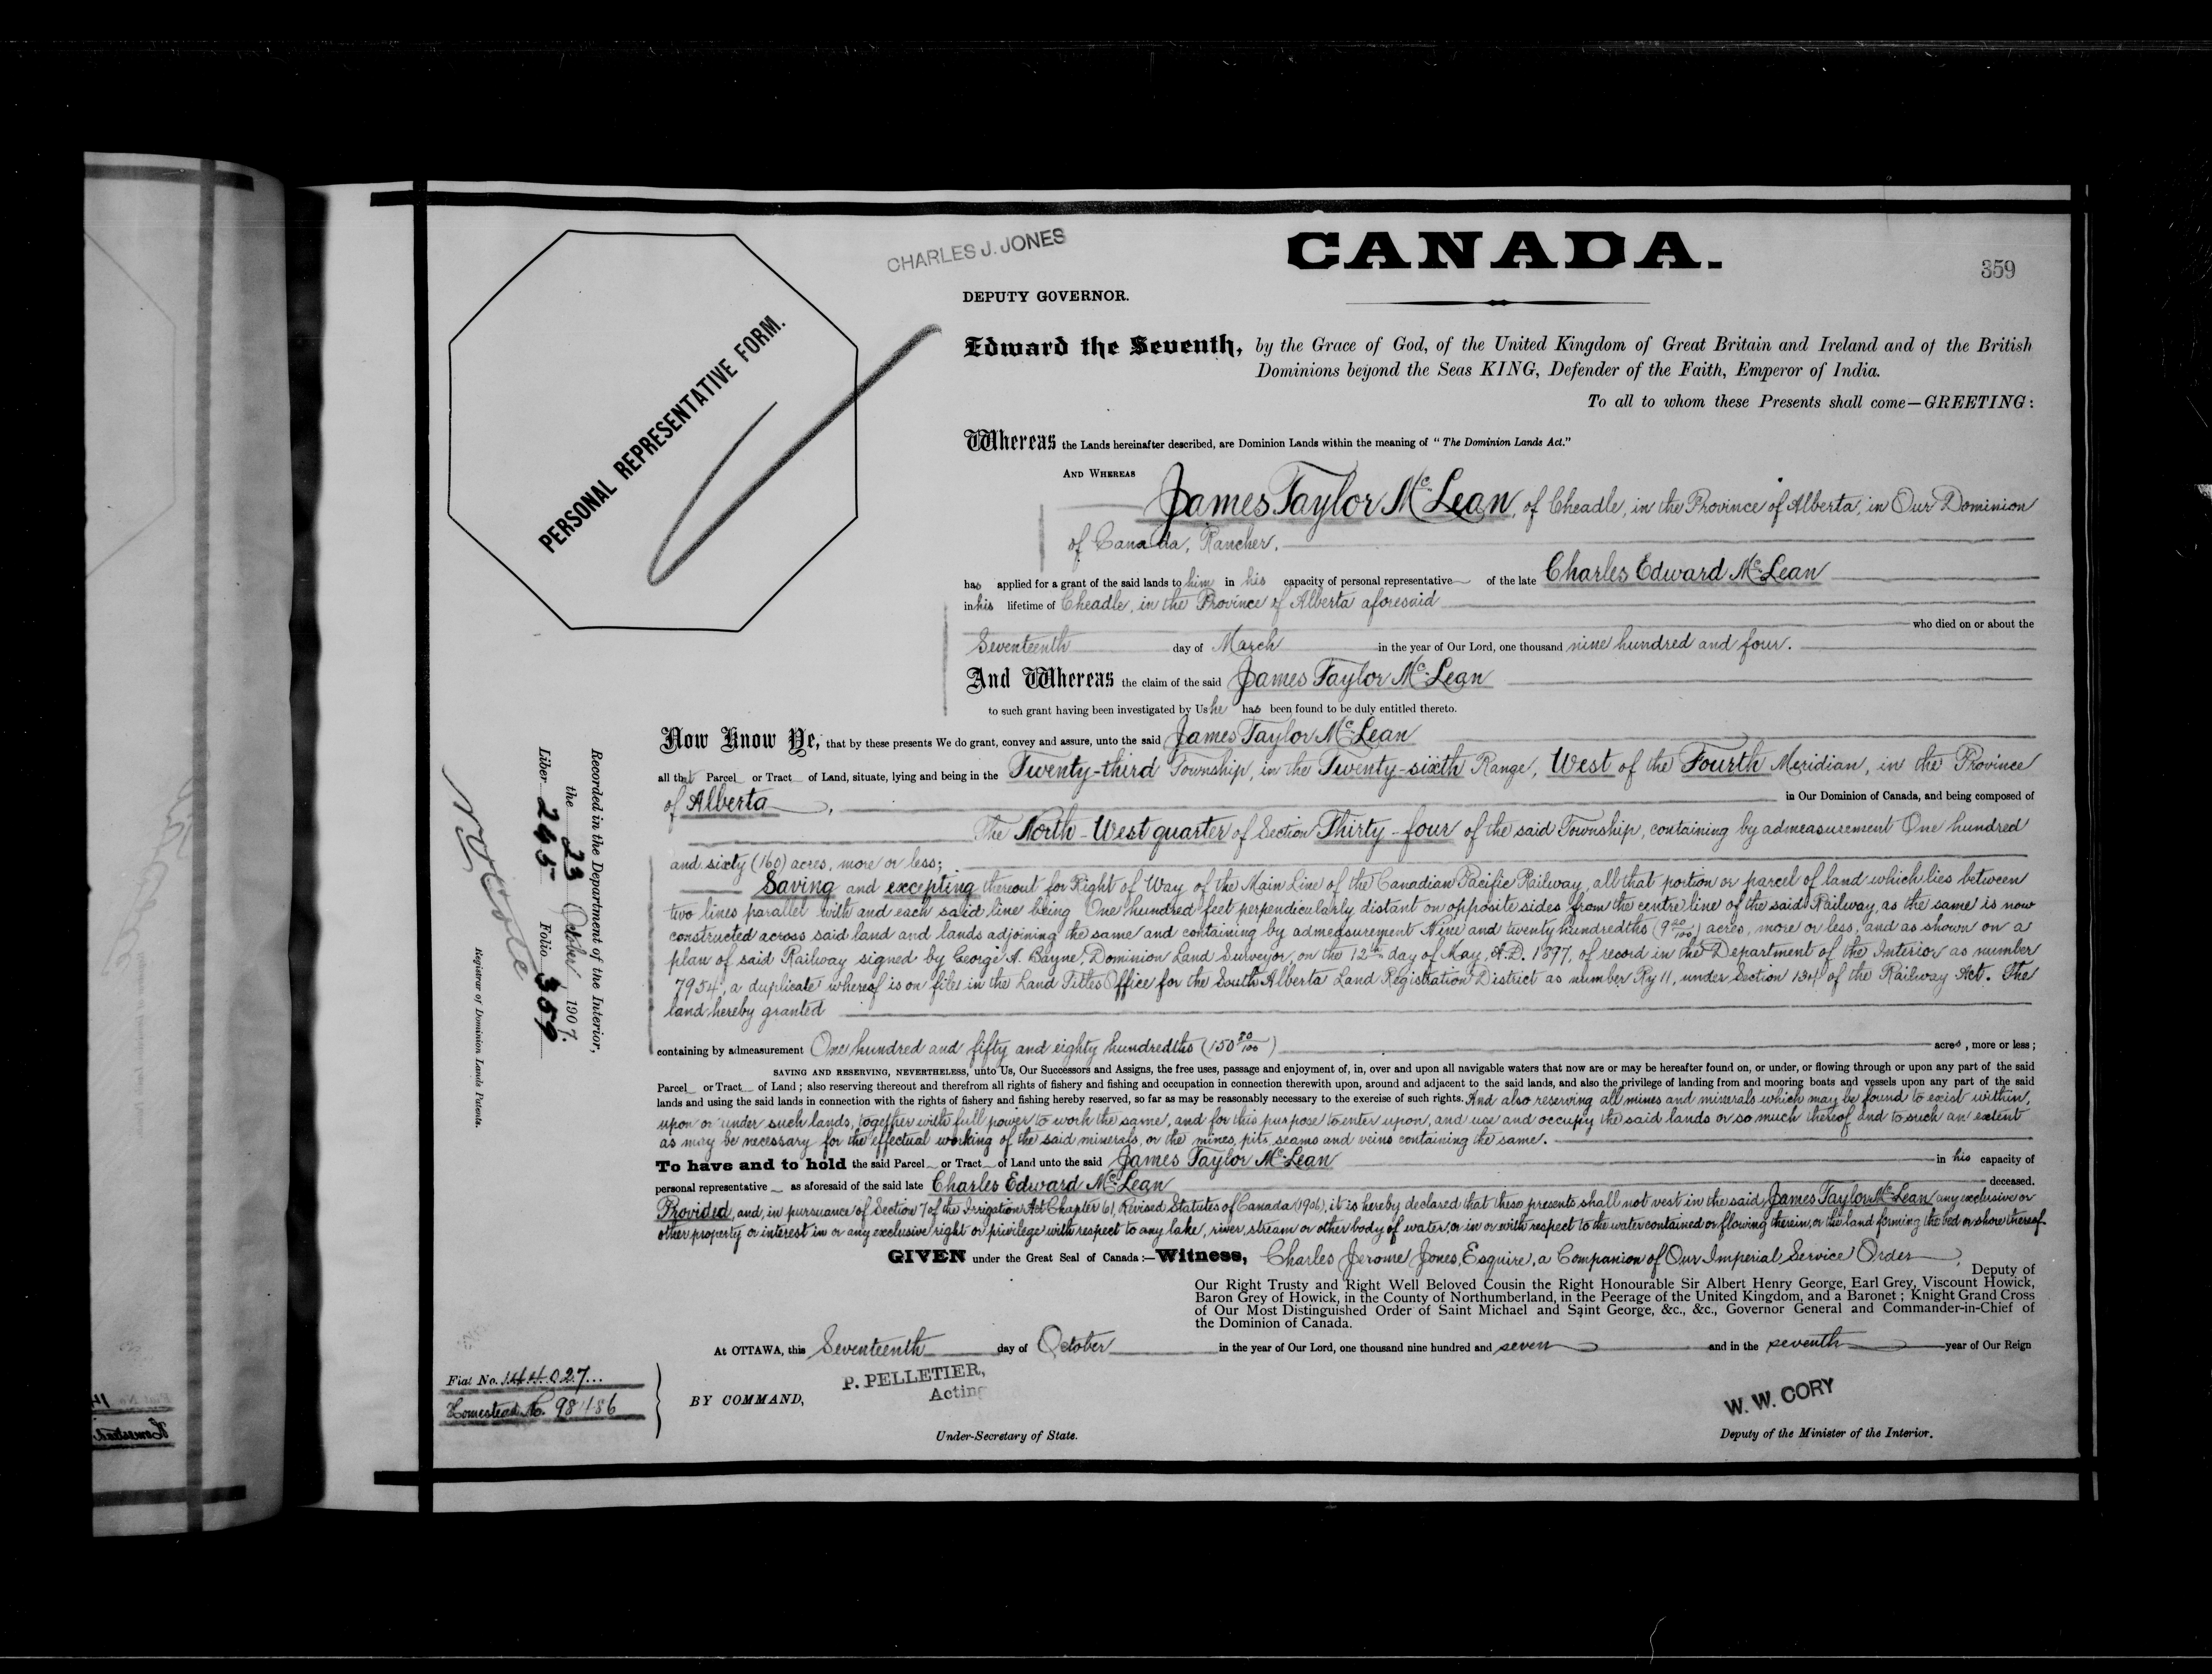 CANADA.
359
CHARLES J. JONES
DEPUTY GOVERNOR.
PERSONAL REPRESENTATIVE FORM.
Edward the Seventh, by the Grace of God, of the United Kingdom of Great Britain and Ireland and of the British
Dominions beyond the Seas KING, Defender of the Faith, Emperor of India.
To all to whom these Presents shall come—GREETING:
Whereas the Lands hereinafter described, are Dominion Lands within the meaning of "The Dominion Lands Act."
AND WHEREAS
James Taylor McLean, of Cheadle, in the Province of Alberta, in Our Dominion
of Canada, Rancher.
has applied for a grant of the said lands to him in his capacity of personal representative of the late Charles Edward McLean
in his lifetime of Cheadle, in the Province of Alberta aforesaid
who died on or about the
Seventeenth day of March in the year of Our Lord, one thousand nine hundred and four.
And Whereas the claim of the said James Taylor McLean
to such grant having been investigated by Us he has been found to be duly entitled thereto.
Now Know Ye, that by these presents We do grant, convey and assure, unto the said James Taylor McLean
all that Parcel or Tract of Land, situate, lying and being in the Twenty-third Township, in the Twenty-sixth Range, West of the Fourth Meridian, in the Province
of Alberta, in Our Dominion of Canada, and being composed of
The North-West quarter of Section Thirty-four of the said Township, containing by admeasurement One hundred
and sixty (160) acres, more or less;
Saving and excepting thereout for Right of Way of the Main Line of the Canadian Pacific Railway, all that portion or parcel of land which lies between
two lines parallel with and each said line being One hundred feet perpendicularly distant on opposite sides from the centre line of the said Railway, as the same is now
constructed across said land and lands adjoining the same and containing by admeasurement Nine and twenty hundredths (9 20/100) acres, more or less, and as shown on a
plan of said Railway signed by George A. Bayne, Dominion Land Surveyor, on the 12th day of May, A.D. 1897, of record in the Department of the Interior as number
7954, a duplicate whereof is on file in the Land Titles Office for the South Alberta Land Registration District as number Ry 11, under Section 134 of the Railway Act. The
land hereby granted
containing by admeasurement One hundred and fifty and eighty hundredths (150 80/100) acres, more or less;
SAVING AND RESERVING, NEVERTHELESS, unto Us, Our Successors and Assigns, the free uses, passage and enjoyment of, in, over and upon all navigable waters that now are or may be hereafter found on, or under, or flowing through or upon any part of the said
Parcel or Tract of Land; also reserving thereout and therefrom all rights of fishery and fishing and occupation in connection therewith upon, around and adjacent to the said lands, and also the privilege of landing from and mooring boats and vessels upon any part of the said
lands and using the said lands in connection with the rights of fishery and fishing hereby reserved, so far as may be reasonably necessary to the exercise of such rights. And also reserving all mines and minerals which may be found to exist within,
upon or under such lands, together with full power to work the same, and for this purpose to enter upon, and use and occupy the said lands or so much thereof and to such an extent
as may be necessary for the effectual working of the said minerals, or the mines, pits, seams and veins containing the same.
To have and to hold the said Parcel or Tract of Land unto the said James Taylor McLean in his capacity of
personal representative as aforesaid of the said late Charles Edward McLean deceased.
Provided, and, in pursuance of Section 7 of the Irrigation Act Chapter 61, Revised Statutes of Canada (1906), it is hereby declared that these presents shall not vest in the said James Taylor McLean any exclusive or
other property or interest in or any exclusive right or privilege with respect to any lake, river, stream or other body of water, or in or with respect to the water contained or flowing therein, or the land forming the bed or shore thereof.
GIVEN under the Great Seal of Canada:—Witness, Charles Jerome Jones, Esquire, a Companion of Our Imperial Service Order,
Deputy of
Our Right Trusty and Right Well Beloved Cousin the Right Honourable Sir Albert Henry George, Earl Grey, Viscount Howick,
Baron Grey of Howick, in the County of Northumberland, in the Peerage of the United Kingdom, and a Baronet; Knight Grand Cross
of Our Most Distinguished Order of Saint Michael and Saint George, &c., &c., Governor General and Commander-in-Chief of
the Dominion of Canada.
At OTTAWA, this Seventeenth day of October in the year of Our Lord, one thousand nine hundred and seven and in the seventh year of Our Reign
BY COMMAND,
P. PELLETIER,
Acting
Under-Secretary of State.
W. W. CORY
Deputy of the Minister of the Interior.
Fiat No. 144027...
Homestead No. 98486
Recorded in the Department of the Interior,
the 23 October 1907.
Liber 245 Folio 359
Registrar of Dominion Lands Patents.